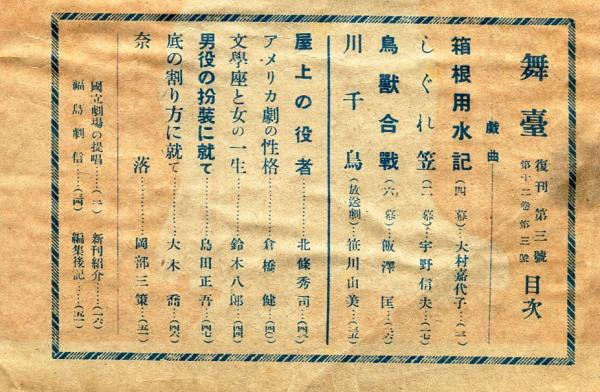 舞臺
復刊 第三號
第十二卷 第三號
目次
戯曲
箱根用水記(四幕)…大村嘉代子…(二)
しぐれ笠(二幕)…宇野信夫…(一七)
鳥獸合戰(六幕)…飯澤匡…(二六)
川千鳥(放送劇)…笹川山美…(三五)
屋上の役者…北條秀司…(四二)
アメリカ劇の性格…倉橋健…(四〇)
文學座と女の一生…鈴木八郎…(四四)
男役の扮裝に就て…島田正吾…(四七)
底の割り方に就て…大木喬…(四六)
奈落…岡部三策…(五一)
國立劇場の提唱…(一)
新刊紹介…(一六)
福島劇信…(三四)
編集後記…(五一)